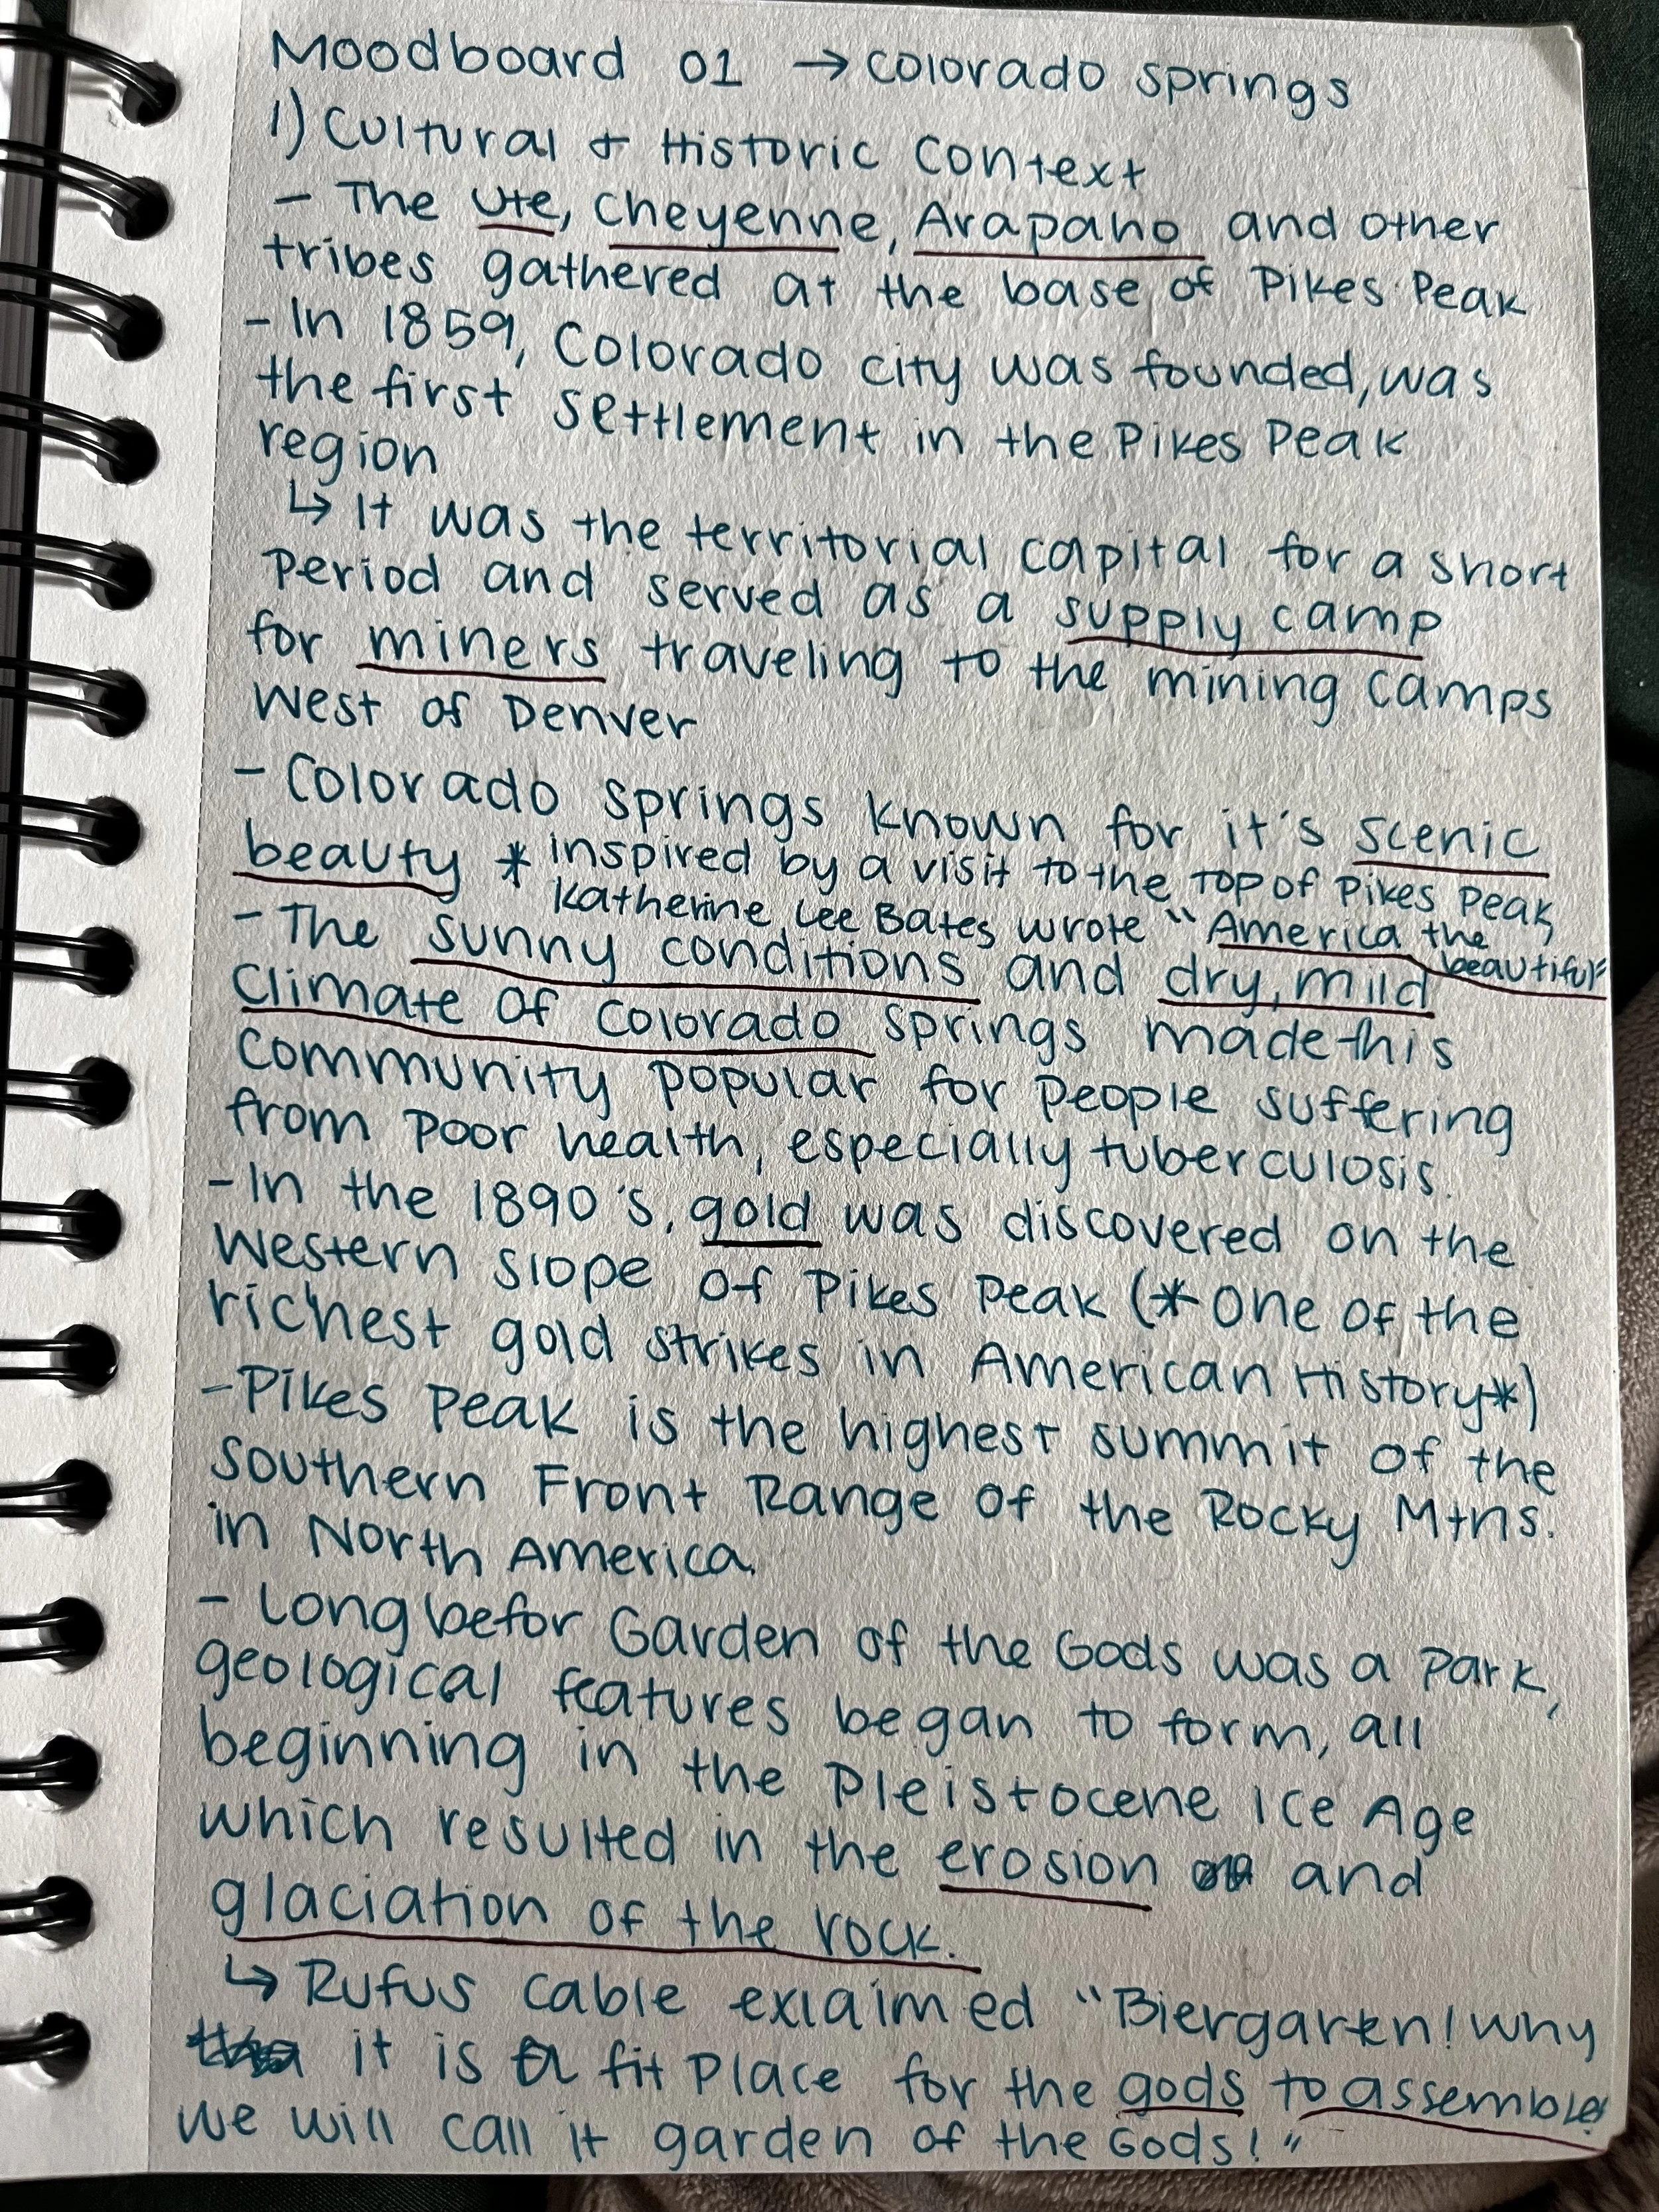 Moodboard 01 → Colorado Springs
1) Cultural & Historic Context
- The Ute, Cheyenne, Arapaho and other
tribes gathered at the base of Pikes Peak
- In 1859, Colorado city was founded, was
the first settlement in the Pikes Peak
region
↳ It was the territorial capital for a short
period and served as a supply camp
for miners traveling to the mining camps
West of Denver
- Colorado Springs known for it's scenic
beauty * inspired by a visit to the top of Pikes Peak,
Katherine Lee Bates wrote "America the
beautiful"
- The sunny conditions and dry, mild
Climate of Colorado Springs made this
Community popular for people suffering
from poor health, especially tuberculosis.
- In the 1890's, gold was discovered on the
Western slope of Pikes Peak (* one of the
richest gold strikes in American History*)
- Pikes Peak is the highest summit of the
Southern Front Range of the Rocky Mtns.
in North America.
- Long befor Garden of the Gods was a park,
geological features began to form, all
beginning in the Pleistocene Ice Age
which resulted in the erosion and
glaciation of the rock.
↳ Rufus Cable exlaimed "Biergarten! Why
it is a fit place for the gods to assemble!
We will call it garden of the Gods!"